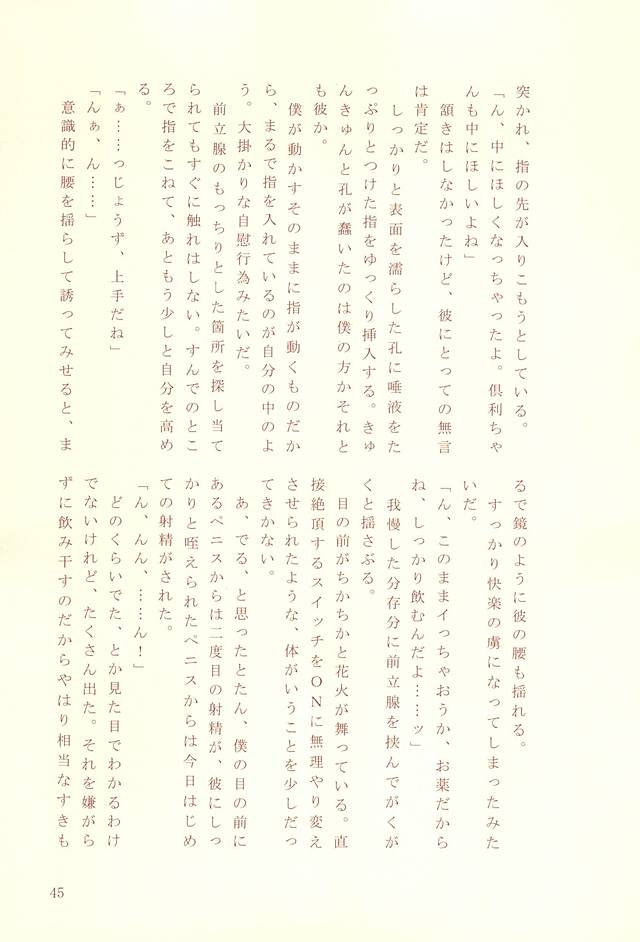 突かれ、指の先が入りこもうとしている。
「ん、中にほしくなっちゃったよ。倶利ちゃ
んも中にほしいよね」
頷きはしなかったけど、彼にとっての無言
は肯定だ。
しっかりと表面を濡らした孔に唾液をた
っぷりとつけた指をゆっくり挿入する。きゅ
んきゅんと孔が蠢いたのは僕の方かそれと
も彼か。
僕が動かすそのままに指が動くものだか
ら、まるで指を入れているのが自分の中のよ
う。大掛かりな自慰行為みたいだ。
前立腺のもっちりとした箇所を探し当て
られてもすぐに触れはしない。すんでのとこ
ろで指をこねて、あともう少しと自分を高め
る。
「ぁ……っじょうず、上手だね」
「んぁ、ん……」
意識的に腰を揺らして誘ってみせると、ま
るで鏡のように彼の腰も揺れる。
すっかり快楽の虜になってしまったみた
いだ。
「ん、このままイっちゃおうか、お薬だから
ね、しっかり飲むんだよ……ッ」
我慢した分存分に前立腺を挟んでがくが
くと揺さぶる。
目の前がちかちかと花火が舞っている。直
接絶頂するスイッチをONに無理やり変え
させられたような、体がいうことを少しだっ
てきかない。
あ、でる、と思ったとたん、僕の目の前に
あるペニスからは二度目の射精が、彼にしっ
かりと咥えられたペニスからは今日はじめ
ての射精がされた。
「ん、んん、……ん！」
どのくらいでた、とか見た目でわかるわけ
でないけれど、たくさん出た。それを嫌がら
ずに飲み干すのだからやはり相当なすきも
45